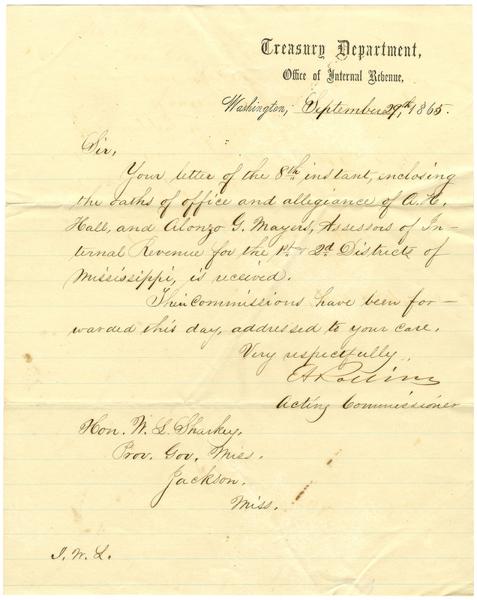 Treasury Department,
Office of Internal Revenue,
Washington, September 29th, 1865.
Sir,
Your letter of the 8th instant, enclosing
the oaths of office and allegiance of A. H.
Hall, and Alonzo G. Mayers, Assessors of In-
ternal Revenue for the 1st & 2d Districts of
Mississippi, is received.
Their Commissions have been for-
warded this day, addressed to your care.
Very respectfully,
E A Rollins
Acting Commissioner
Hon. W. L. Sharkey,
Prov. Gov. Miss.
Jackson.
Miss.
J. W. L.